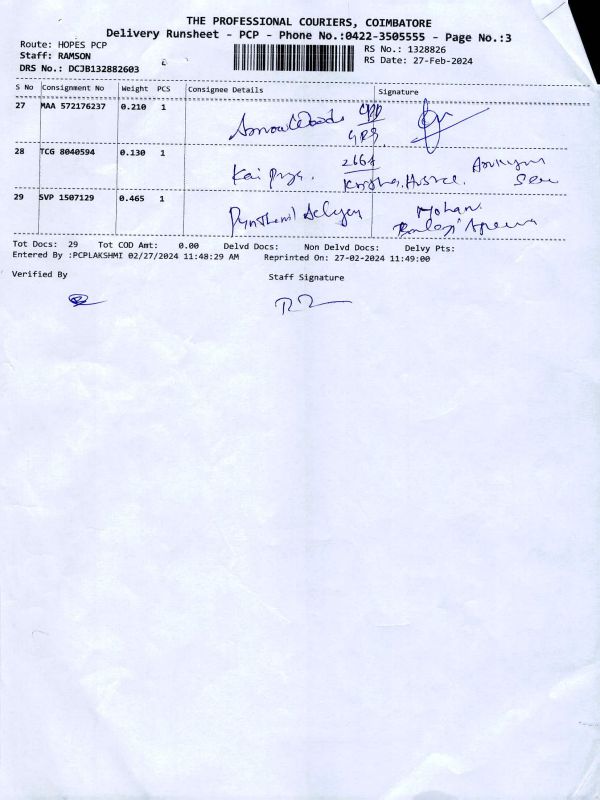 THE PROFESSIONAL COURIERS, COIMBATORE
Delivery Runsheet - PCP - Phone No.:0422-3505555 - Page No.:3
Route: HOPES PCP
RS No.: 1328826
Staff: RAMSON
RS Date: 27-Feb-2024
DRS No.: DCJB132882603
S No Consignment No Weight PCS Consignee Details Signature
27 MAA 572176237 0.210 1
28 TCG 8040594 0.130 1 2664
29 SVP 1507129 0.465 1 Mohan
Tot Docs: 29 Tot COD Amt: 0.00 Delvd Docs: Non Delvd Docs: Delvy Pts:
Entered By :PCPLAKSHMI 02/27/2024 11:48:29 AM Reprinted On: 27-02-2024 11:49:00
Verified By Staff Signature